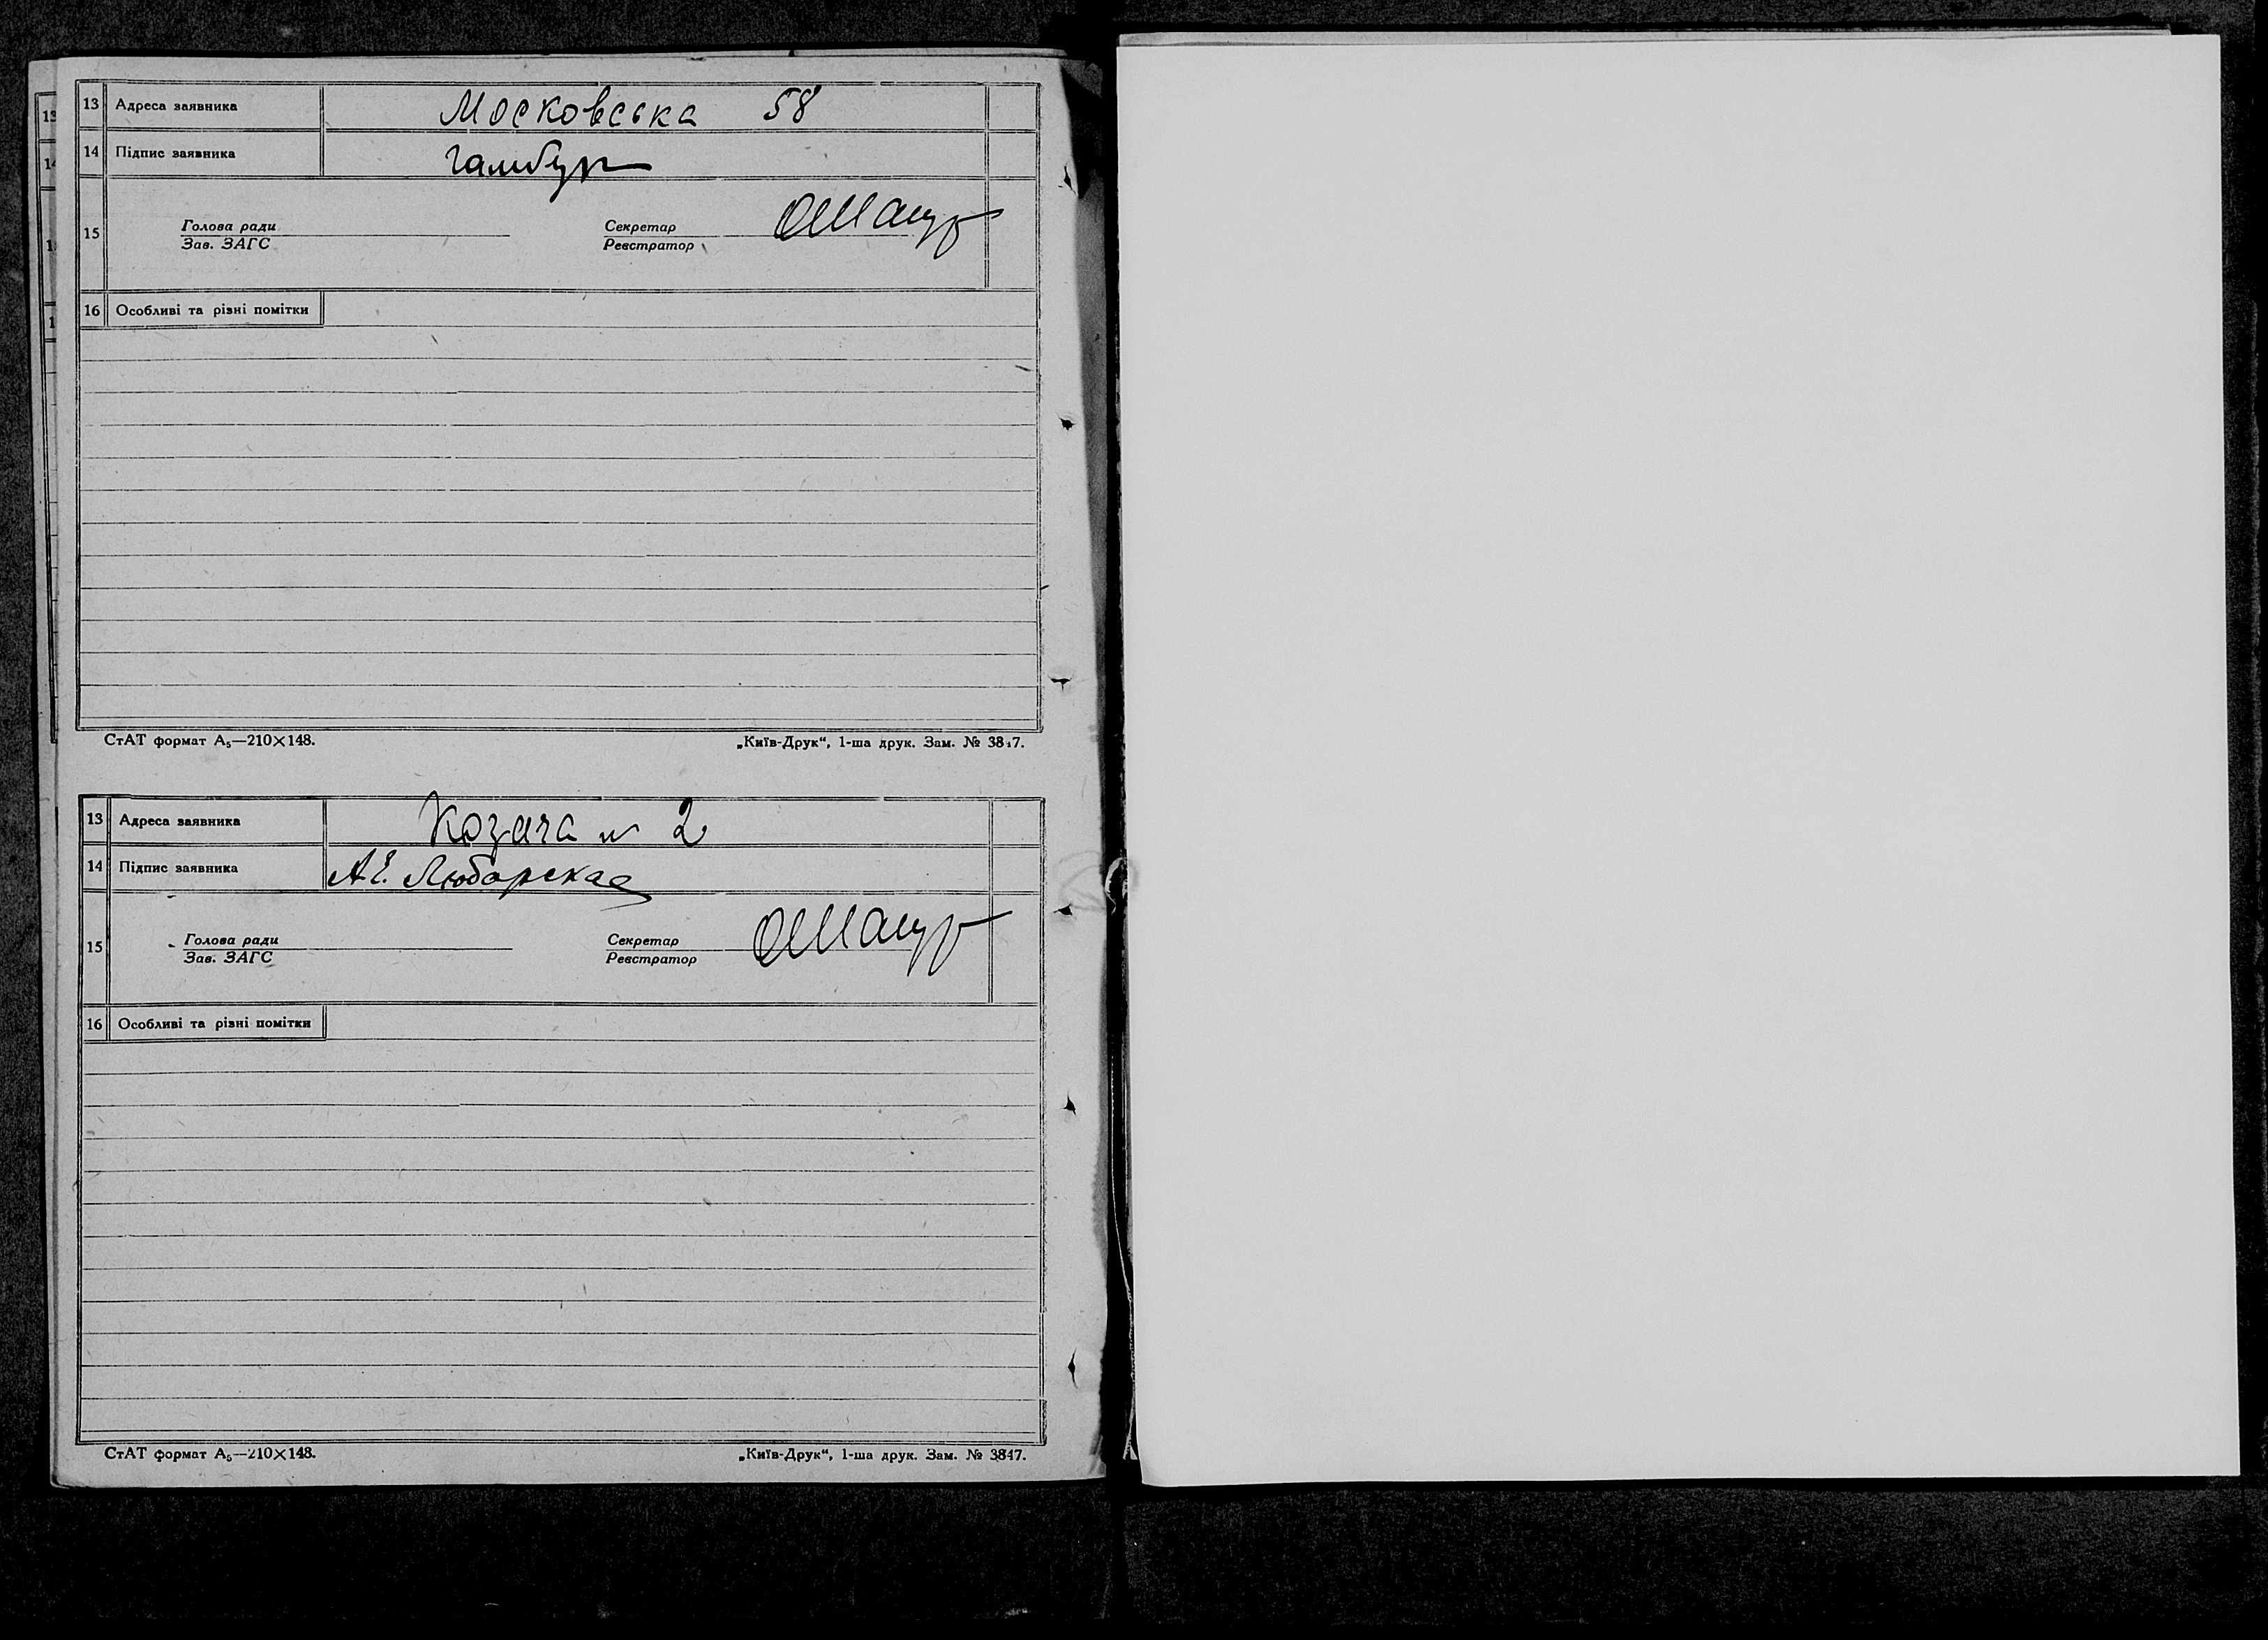 13 Адреса заявника Московська 58
14 Підпис заявника Гамбур
15 Голова ради Секретар
Зав. ЗАГС Реєстратор
16 Особливі та різні помітки
СтАТ формат А₅—210×148. „Київ-Друк“, 1-ша друк. Зам. № 3817.
13 Адреса заявника Козача № 2
14 Підпис заявника А.Е. Любарская
15 Голова ради Секретар
Зав. ЗАГС Реєстратор
16 Особливі та різні помітки
СтАТ формат А₅—210×148. „Київ-Друк“, 1-ша друк. Зам. № 3817.